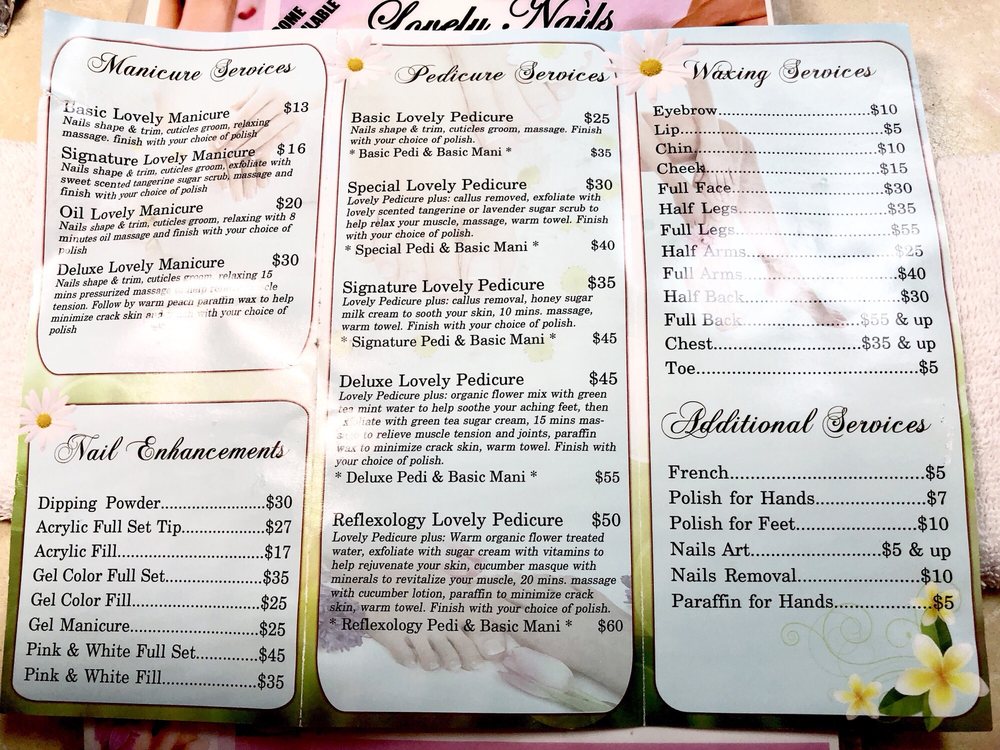 OME
ILABLE
Lovely Nails
Manicure Services
Basic Lovely Manicure $13
Nails shape & trim, cuticles groom, relaxing
massage. finish with your choice of polish
Signature Lovely Manicure $16
Nails shape & trim, cuticles groom, exfoliate with
sweet scented tangerine sugar scrub, massage and
finish with your choice of polish
Oil Lovely Manicure $20
Nails shape & trim, cuticles groom, relaxing with 8
minutes oil massage and finish with your choice of
polish
Deluxe Lovely Manicure $30
Nails shape & trim, cuticles groom, relaxing 15
mins pressurized massage help
tension. Follow by warm peach paraffin wax to help
minimize crack skin and with your choice of
polish
Nail Enhancements
Dipping Powder....................$30
Acrylic Full Set Tip................$27
Acrylic Fill............................$17
Gel Color Full Set..................$35
Gel Color Fill.........................$25
Gel Manicure.........................$25
Pink & White Full Set............$45
Pink & White Fill...................$35
Pedicure Services
Basic Lovely Pedicure $25
Nails shape & trim, cuticles groom, massage. Finish
with your choice of polish.
* Basic Pedi & Basic Mani * $35
Special Lovely Pedicure $30
Lovely Pedicure plus: callus removed, exfoliate with
lovely scented tangerine or lavender sugar scrub to
help relax your muscle, massage, warm towel. Finish
with your choice of polish.
* Special Pedi & Basic Mani * $40
Signature Lovely Pedicure $35
Lovely Pedicure plus: callus removal, honey sugar
milk cream to sooth your skin, 10 mins. massage,
warm towel. Finish with your choice of polish.
* Signature Pedi & Basic Mani * $45
Deluxe Lovely Pedicure $45
Lovely Pedicure plus: organic flower mix with green
tea mint water to help soothe your aching feet, then
exfoliate with green tea sugar cream, 15 mins mas-
sage to relieve muscle tension and joints, paraffin
wax to minimize crack skin, warm towel. Finish with
your choice of polish.
* Deluxe Pedi & Basic Mani * $55
Reflexology Lovely Pedicure $50
Lovely Pedicure plus: Warm organic flower treated
water, exfoliate with sugar cream with vitamins to
help rejuvenate your skin, cucumber masque with
minerals to revitalize your muscle, 20 mins. massage
with cucumber lotion, paraffin to minimize crack
skin, warm towel. Finish with your choice of polish.
* Reflexology Pedi & Basic Mani * $60
Waxing Services
Eyebrow............................$10
Lip.....................................$5
Chin,.................................$10
Cheek................................$15
Full Face...........................$30
Half Legs...........................$35
Full Legs............................$55
Half Arms..........................$25
Full Arms...........................$40
Half Back...........................$30
Full Back......................$55 & up
Chest............................$35 & up
Toe.....................................$5
Additional Services
French...................................$5
Polish for Hands...................$7
Polish for Feet.....................$10
Nails Art......................$5 & up
Nails Removal.....................$10
Paraffin for Hands................$5